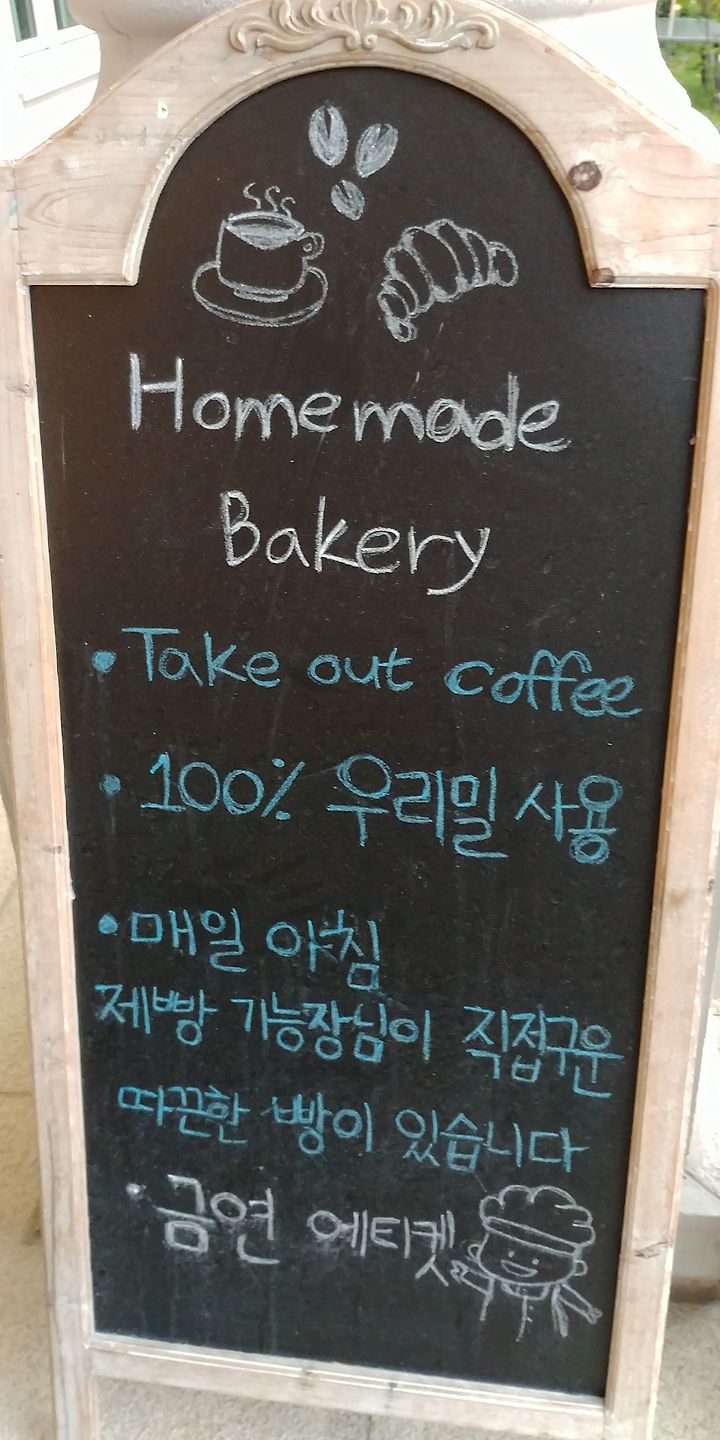 Homemade
Bakery
• Take out coffee
• 100% 우리밀 사용
• 매일 아침
제빵 기능장님이 직접구운
따끈한 빵이 있습니다
• 금연 에티켓